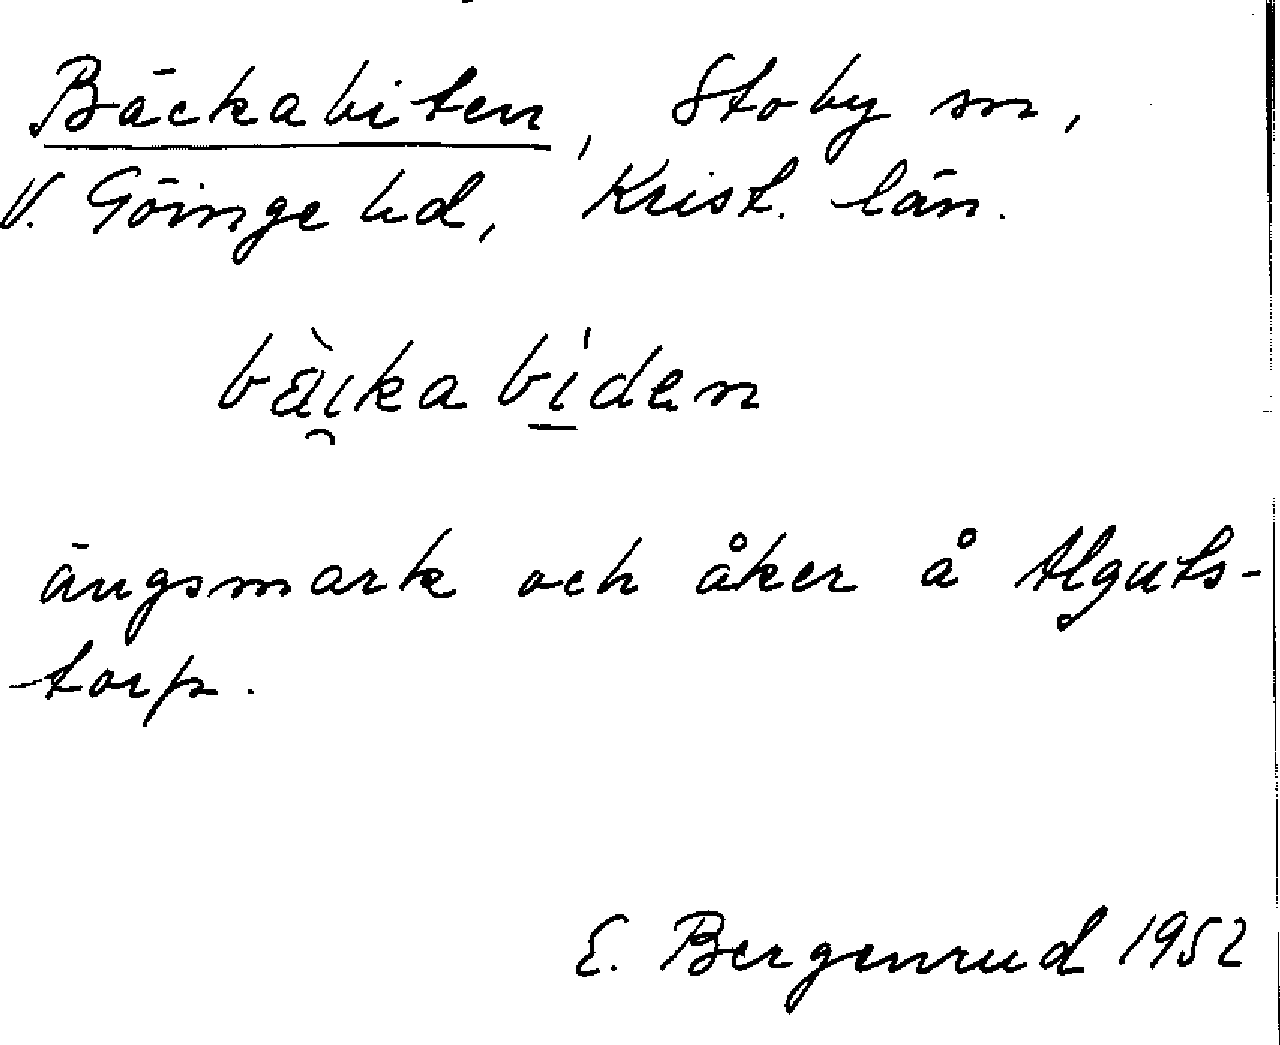 Bäckabiten, Stoby sn,
V. Göinge hd, Krist. län.
bæ̀i̯kabíden
ängsmark och åker å Alguts-
torp.
E. Bergenrud 1952